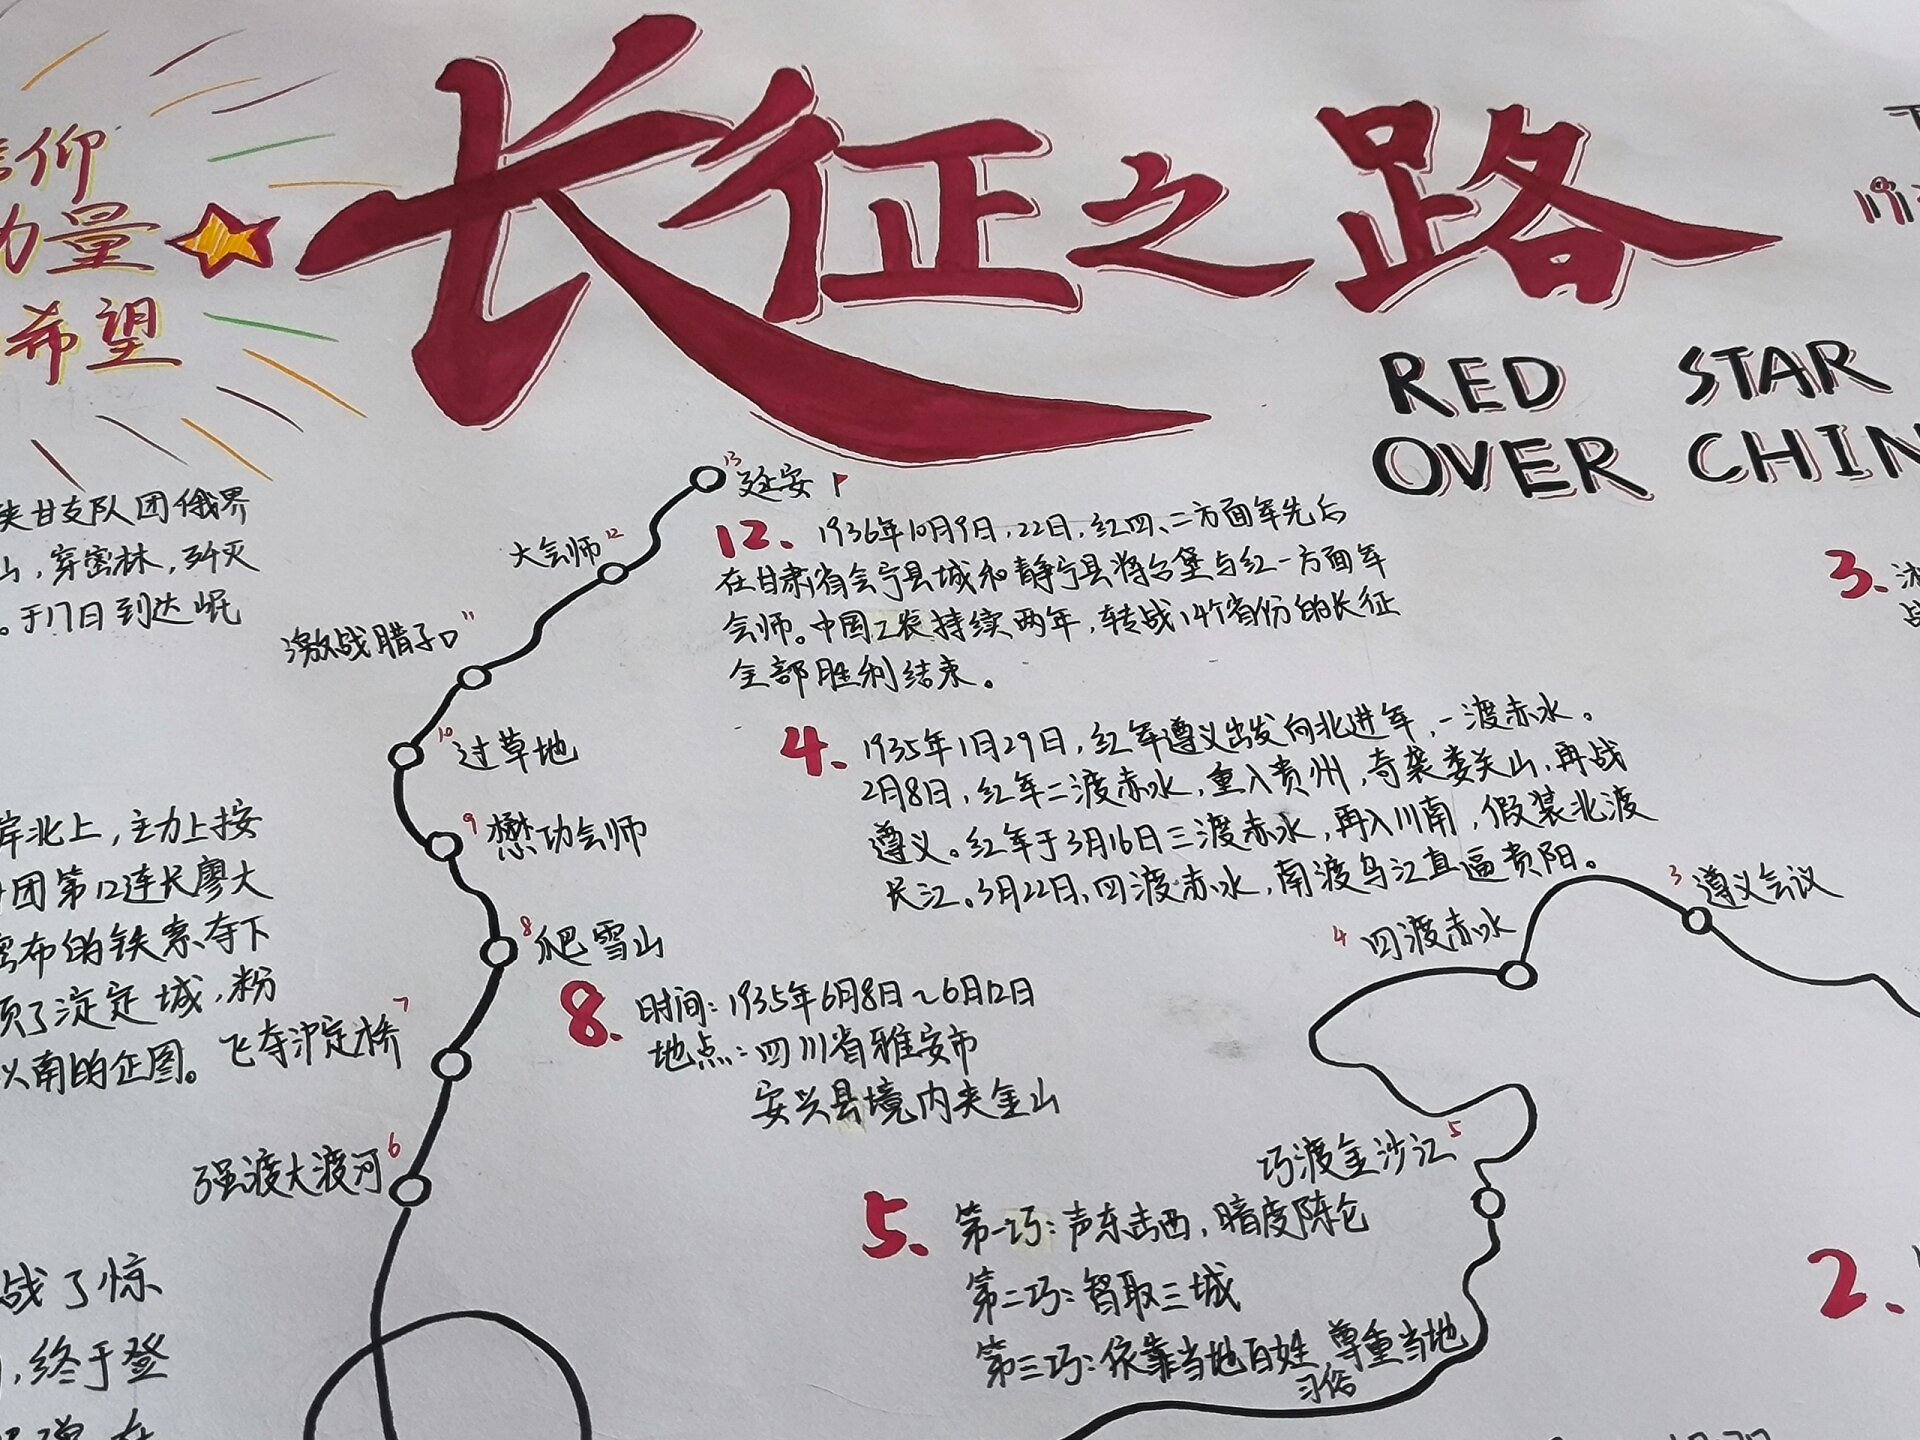 长征之路
RED STAR
OVER CHIN
仰
量
希望
延安
13
12. 1936年10月9日,22日,红四、二方面军先后
在甘肃省会宁县城和静宁县将台堡与红一方面军
会师。中国工农持续两年,转战14个省份的长征
全部胜利结束。
大会师 12
激战腊子口 11
10 过草地
9 懋功会师
8 爬雪山
飞夺泸定桥 7
强渡大渡河 6
甘支队团俄界
山,穿密林,歼灭
。于17日到达岷
岸北上,主力上按
团第12连长廖大
密布的铁索夺下
领了淀定城,粉
以南的企图。
战了惊
,终于登
4. 1935年1月29日,红军遵义出发向北进军,一渡赤水。
2月8日,红军二渡赤水,重入贵州,奇袭娄关山,再战
遵义。红军于3月16日三渡赤水,再入川南,假装北渡
长江。3月22日,四渡赤水,南渡乌江直逼贵阳。
3 遵义会议
4 四渡赤水
8. 时间:1935年6月8日~6月12日
地点:四川省雅安市
安兴县境内夹金山
巧渡金沙江 5
5. 第一巧:声东击西,暗度陈仓
第二巧:智取三城
第三巧:依靠当地百姓 尊重当地
习俗
3.
2.